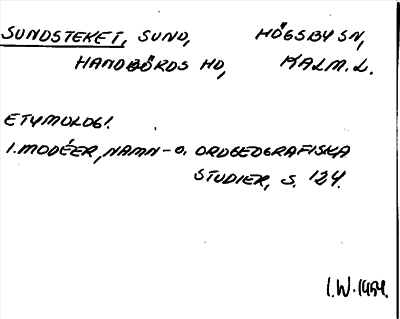 SUNDSTEKET, SUND, HÖGSBY SN,
HANDBÖRDS HD, KALM. L.
ETYMOLOGI.
I. MODÉER, NAMN- O. ORDGEOGRAFISKA
STUDIER, S. 124.
I.W. 1954.